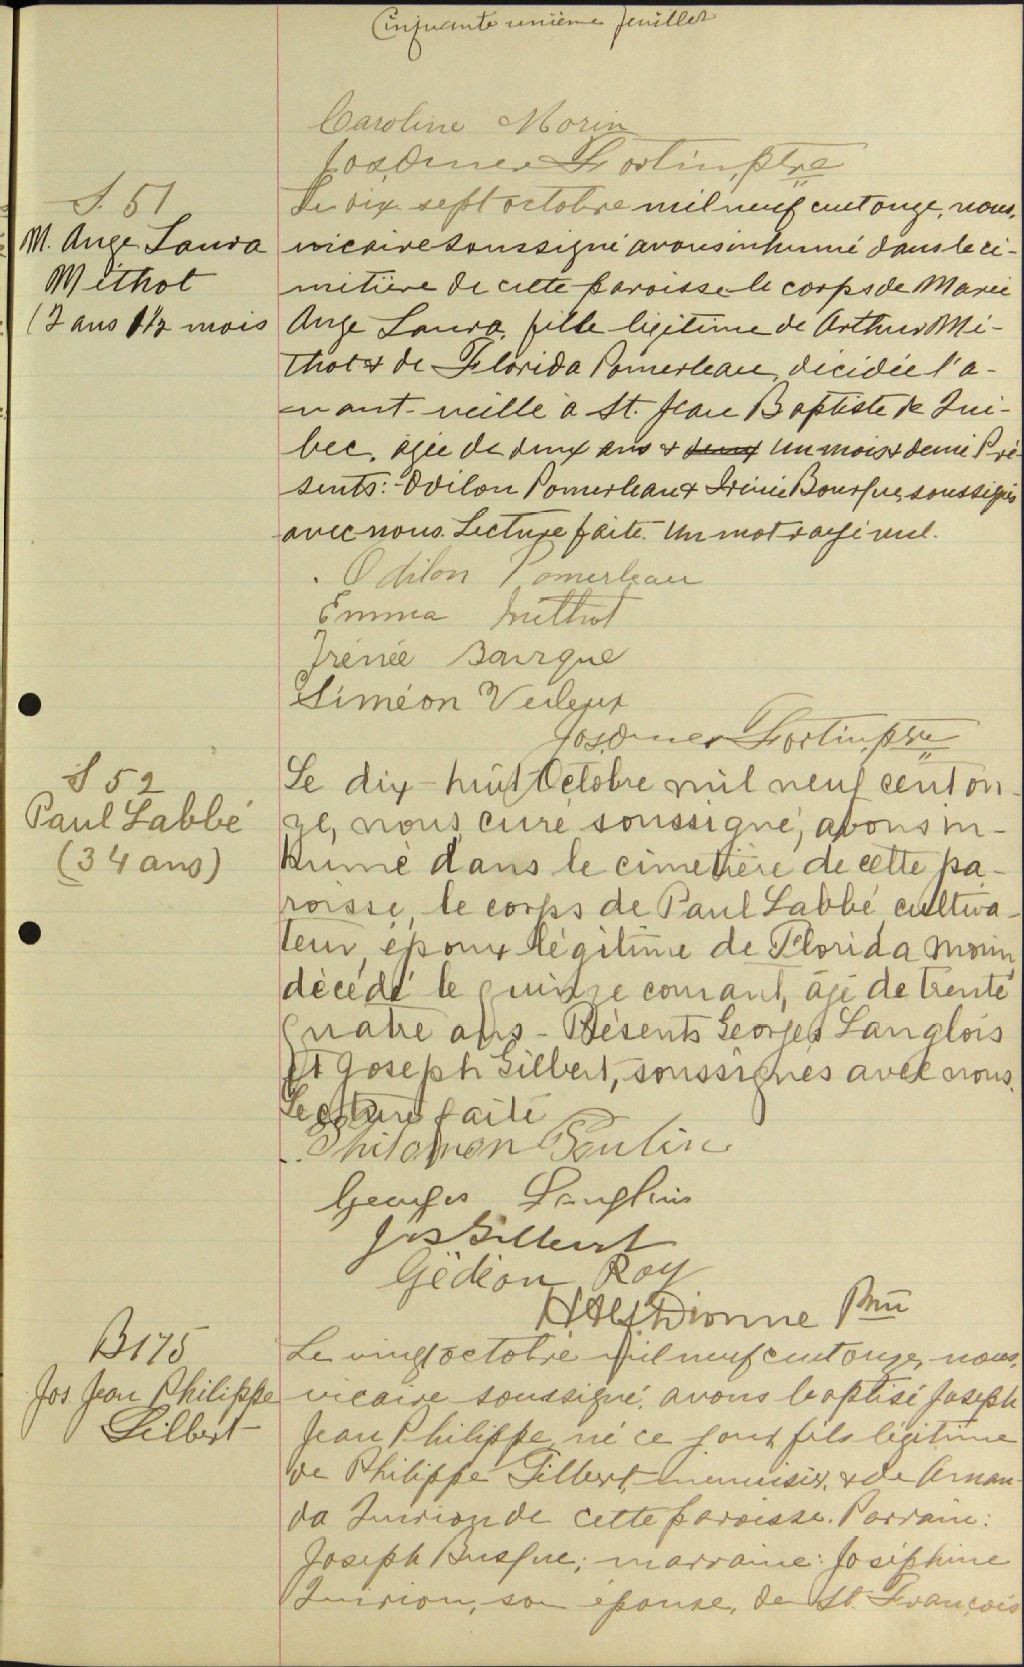 Cinquante unième feuillet
Caroline Morin
Jos Omer Fortin, ptre
S. 51
M. Ange Laura
Méthot
(2 ans 1 1/2 mois
Le dix sept octobre mil neuf cent onze, nous,
vicaire soussigné avons inhumé dans le ci-
mitière de cette paroisse le corps de Marie
Ange Laura, fille légitime de Arthur Mé-
thot & de Florida Pomerleau, décédée l'a-
vant-veille à St. Jean Baptiste de Qué-
bec, âgée de deux ans & deux un mois & demi Pré
sents:- Odilon Pomerleau & Irénée Bourque, soussignés
avec nous. Lecture faite. Un mot rayé nul.
Odilon Pomerleau
Emma Méthot
Irénée Bourque
Siméon Veilleux
Jos. Omer Fortin, ptre
S 52
Paul Labbé
(34 ans)
Le dix-huit Octobre mil neuf cent on-
ze, nous, curé soussigné, avons in-
humé dans le cimetière de cette pa-
roisse, le corps de Paul Labbé cultiva-
teur, époux légitime de Florida Morin,
décédé le quinze courant, âgé de trente
quatre ans - Présents Georges Langlois
et Joseph Gilbert, soussignés avec nous.
Lecture faite
Philamon Poulin
Georges Langlois
Jos Gilbert
Gédéon Roy
H Alf Dionne Ptre
B175
Jos Jean Philippe
Gilbert
Le vingt octobre mil neuf cent onze, nous,
vicaire soussigné, avons baptisé Joseph
Jean Philippe, né ce jour, fils légitime
de Philippe Gilbert, menuisier, & de Aman-
da Quirion de cette paroisse. Parrain:
Joseph Busque; marraine: Joséphine
Quirion, son épouse, de St. François